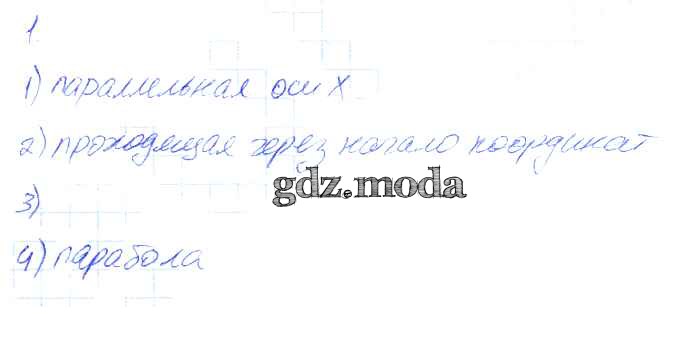 1.
1) параллельная оси X
2) проходящая через начало координат
gdz.moda
3)
4) парабола